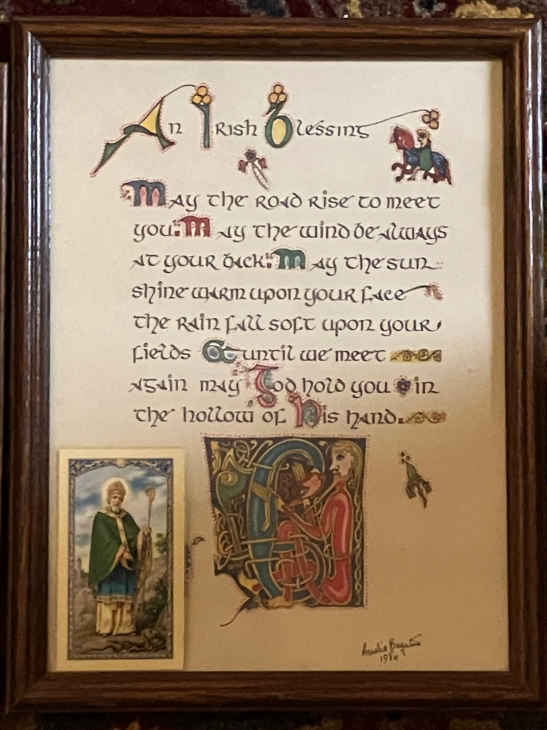 An Irish Blessing
May the road rise to meet
you: May the wind be always
at your back: May the sun
shine warm upon your face
the rain fall soft upon your
fields & until we meet
again may God hold you in
the hollow of His hand.